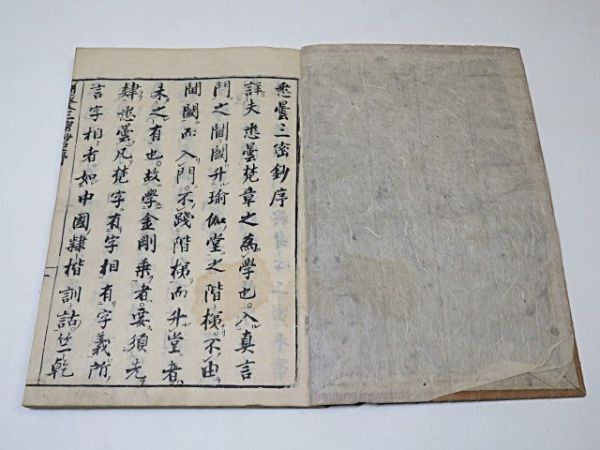 悉曇三密鈔序
詳夫悉曇梵章之為學也入真言
門之閫國升瑜伽堂之階梯不由
閫國而入門不踐階梯而升堂者
未之有也故學金剛乘者要須先
肄悉曇凡梵字有字相有字義所
言字相者如中國隸楷訓詁竺乾